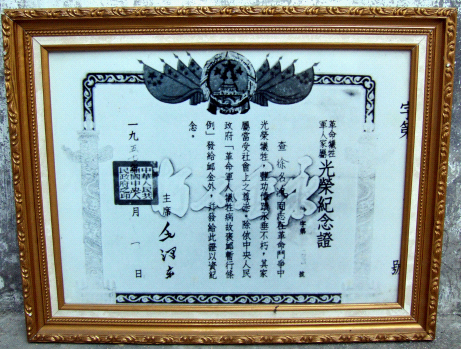 字第號
革命犧牲
軍人家屬
光榮紀念證
號
查徐同志在革命鬥爭中
光榮犧牲，豐功偉蹟永垂不朽，其家
屬當受社會上之尊崇。除依中央人民
政府「革命軍人犧牲病故褒卹暫行條
例」發給卹金外，並發給此證以資紀
念。
主席 毛澤東
一九五月一日
中華人民共和國中央人民政府之印